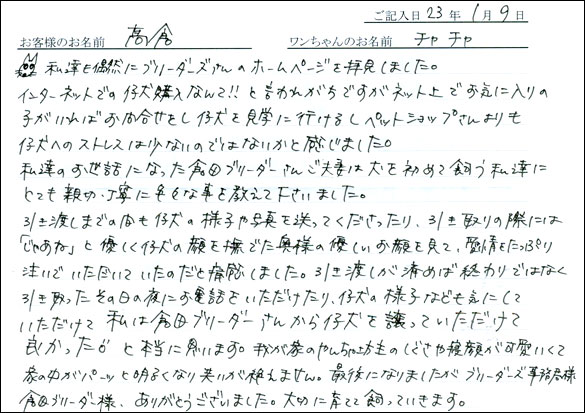 ご記入日 23年 1月 9日
お客様のお名前 高倉 ワンちゃんのお名前 チャチャ
私達も偶然にブリーダーズさんのホームページを拝見しました。
インターネットでの仔犬購入なんて!!と言われがちですがネット上でお気に入りの
子がいればお問合せをし仔犬を見学に行けるしペットショップさんよりも
仔犬へのストレスは少ないのではないかと感じました。
私達のお世話になった倉田ブリーダーさんご夫妻は犬を初めて飼う私達に
とても親切・丁寧に色々な事を教えて下さいました。
引き渡しまでの間も仔犬の様子や写真を送ってくださったり、引き取りの際には
「じゃあね」と優しく仔犬の顔を撫でた奥様の優しいお顔を見て、愛情をたっぷり
注いでいただいていたのだと痛感しました。引き渡しが済めば終わりではなく
引き取ったその日の夜にお電話をいただけたり、仔犬の様子なども気にして
いただけて私は倉田ブリーダーさんから仔犬を譲っていただけて
良かったぁと本当に思います。我が家のやんちゃ坊主のしぐさや寝顔が可愛いくて
家の中がパーッと明るくなり笑いが絶えません。最後になりましたがブリーダーズ事務局様
倉田ブリーダー様、ありがとうございました。大切に育てて飼っていきます。